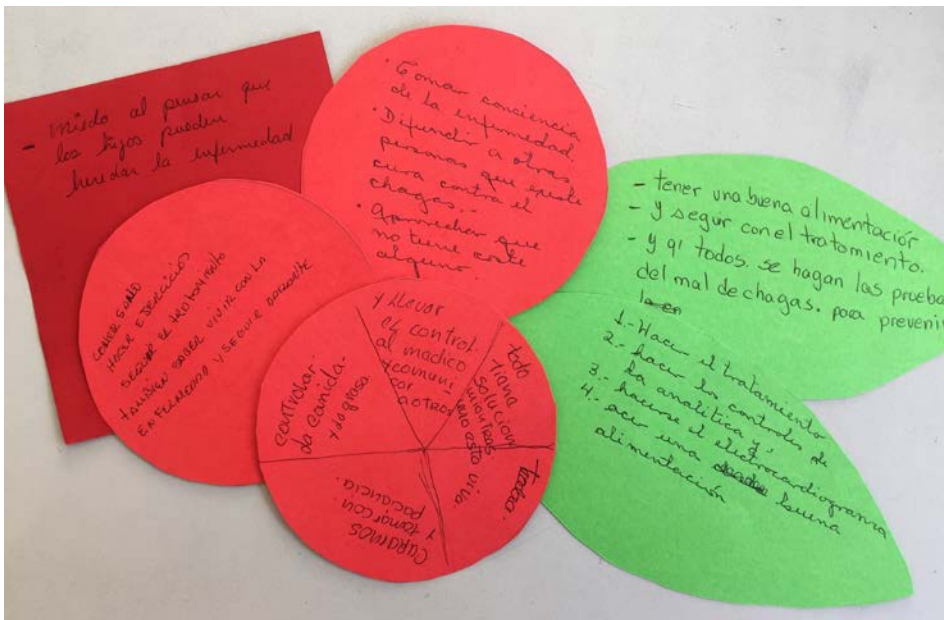 - Miedo al pensar que
los hijos pueden
heredar la enfermedad
· Tomar conciencia
de la enfermedad.
· Difundir a otras
personas que existe
cura contra el
chagas..
· Aprovechar que
no tiene coste
alguno.
COMER SANO
HACER EJERCICIOS
SEGUIR EL TRATAMIENTO
TAMBIEN SABER VIVIR CON LA
ENFERMEDAD Y SEGUIR ADELANTE
y llevar
el control.
al medico
y comuni
car
a otros
todo
tiene
solucion
mientras
uno esta viva.
controlar
la comida.
y no grasa
CURARNOS
y tomar con
paciencia.
- tener una buena alimentación
- y seguir con el tratamiento.
- y q' todos. se hagan las pruebas
del mal de chagas. para prevenir
1.- Hacer el tratamiento
2.- hacer los controles de
la analitica y,
3.- hacerse el electrocardiograma
4.- acer una buena
alimentación